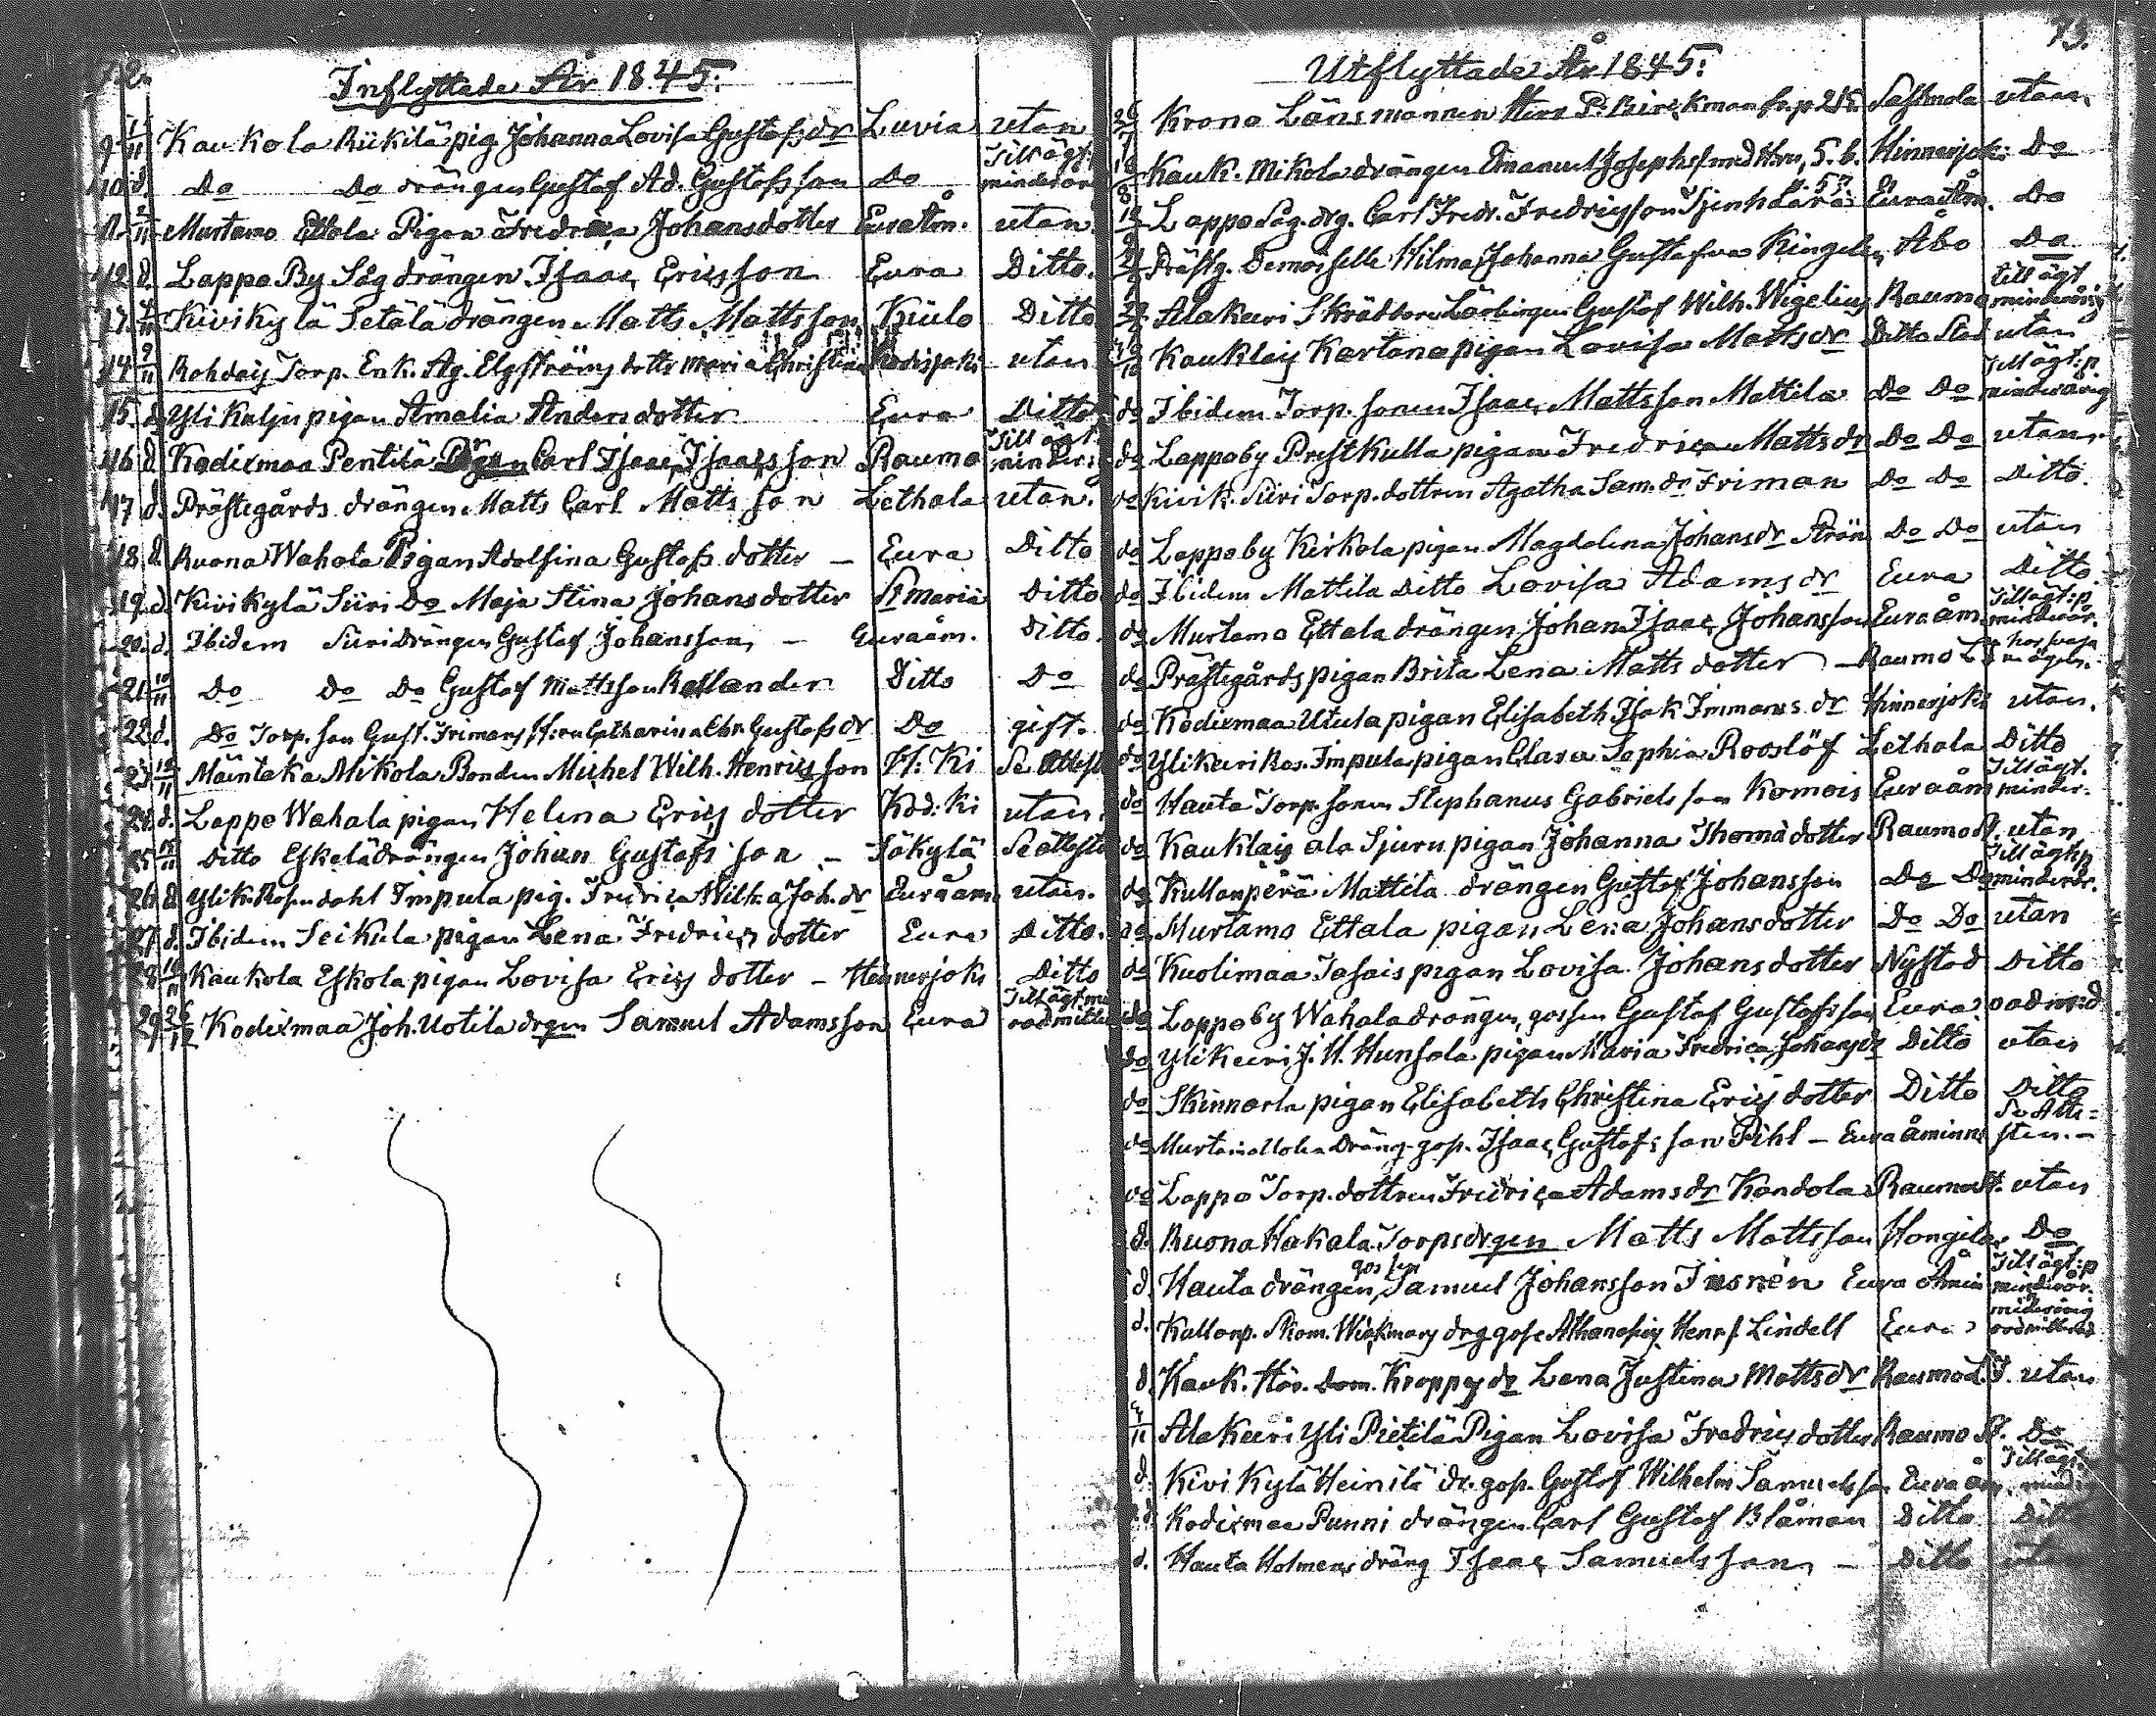 72.
Inflyttade År 1845.
9 1/11 Kaukola Riikilä pig. Johanna Lovisa Gustafsdr Luvia utan
10 d. Do Do drängen Gustaf Ad. Gustafsson Do Till ägt. minderår
11 Murtamo Ettala Pigan Fredrica Johansdotter Euraåm. utan
12 d. Lappo By Såg drängen Isaac Ericsson Eura Ditto.
Kivikylä Setälä drängen Matts Mattsson Kiulo Ditto
14 9/11 Rohdais Torp. Enk. Ag. Elgströms dottr Maria Christina Kodisjoki utan
15. d. Yli Kalju pigan Amalia Anders dotter Eura Ditto
16 d. Kodixmaa Pentilä Carl Isaac Isaacsson Raumo Till ägt. minder:
17 d. Prästegårds drängen Matts Carl Mattsson Lethala utan.
18 d. Ruona Wahala Pigan Adolfina Gustafs dotter – Eura Ditto
19. d. Kivikylä Siiri Do Maja Stina Johansdotter St Maria Ditto
20. d. Ibidem Siiri Drängen Gustaf Johansson – Euraåm. Ditto.
21 10/11 Do Do Do Gustaf Mattsson Rollander Ditto Do
22 d. Do Torp. son Gust. Frimans H:ru Catharina Chr. Gustafsdr Do gift.
23 12/11 Mäintaka Mikola Bonden Michel Wilh. Henricsson H: Ki Se Attest
24 d. Lappo Wahala pigan Helena Erics dotter Kod: Ki utan.
25 15/11 Ditto Eskolä drängen Johan Gustafsson – Säkylä Se attest
26 d. Ylik. Rosendahl Impula pig. Fredrica Wilh:a Joh. dr Euraåm. utan.
27 d. Ibidem Seikula pigan Lena Fredrics dotter Eura Ditto.
28 Kaukola Eskola pigan Lovisa Erics dotter – Hinnerjoki Ditto
29 26/12 Kodixmaa Joh. Uotila drgen Samuel Adamsson Eura Till ägt. m oadmitter
73.
Utflyttade År 1845.
26/7 Krono Länsmannen Herr P. Birckman fr. p. 215. Sastmola utan.
18/8 Kauk. Mikola drängen Emanuel Josephs. med Hru, S. b. Hinnerjoki Do
Lappo Såg. drg. Carl Fredr. Fredricsson Tjenhdära p. 53. Euraåm. Do
Prästg. Demoiselle Hilma Johanna Gustafva Kingelin Åbo Do
Alakeeri Skräddare Lärlingen Gustaf Wilh. Wigelius Raumo till ägt. minderårig
Kauklais Kartano pigan Lovisa Mattsdr Ditto Stad utan
do Ibidem Torp. sonen Isaac Mattsson Mattila Do Do Till ägt: p minderårig
do Lappoby Prestkulla pigan Fredrica Mattsdr Do Do utan.
do Kivik. Siiri Torp. dottren Agatha Sam. dr Friman Do Do Ditto.
do Lappoby Kirkola pigan Magdalena Johansdr Strön Do Do utan
do Ibidem Mattila Ditto Lovisa Adamsdr Eura Ditto
do Murtamo Ettala drängen Johan Isaac Johansson Euraåm. Till ägt: p minderår.
do Prästegårds pigan Brita Lena Matts dotter – Raumo L
do Kodixmaa Utula pigan Elisabeth Isak Frimans dr Hinnerjoki utan.
do Ylikeeri Ros. Impula pigan Clara Sophia Rooslöf Lethala Ditto
do Hauta Torp. sonen Stephanus Gabrielsson Komois Euraåm Till ägt. minder.
do Kauklais ala Sjuru pigan Johanna Thomà dotter Raumo St. utan
do Kullanperä Mattila drängen Gustaf Johansson Do Do Till ägt:p minderår.
do Murtamo Ettala pigan Lena Johansdotter Do Do utan
do Kuolimaa Tasais pigan Lovisa Johansdotter Nystad Ditto
do Lappoby Wahala drängen, gossen Gustaf Gustafsson Eura oadm:d
do Ylikeeri J. H. Hunsala pigan Maria Fredrica Johansdr Ditto utan
do Skinnarla pigan Elisabeth Christina Erics dotter Ditto Ditto
do Murtamo Uola Dräng. gos. Isaac Gustafsson Pihl – Euraåminne Se Attesten. –
do Lappo Torp. dottren Fredrica Adamsdr Kandola Raumo St. utan
d. Ruona Hakala Torps drgen Matts Mattsson Hongila Do
d. Hauta drängen gossen Samuel Johansson Irenén Eura Åmin Till ägt:p minderår.
d. Kullanp. Skom. Wickmans drg gosse Athanasius Henr. s. Lindell Eura minderårig oadmitterad
d. Kauk. Hös. Dom. Kroppsdr Lena Justina Mattsdr Raumo L. F. utan
Alakeeri Yli Pietilä Pigan Lovisa Fredrics dotter Raumo St. Do
d. Kivi Kylä Heinilä dr. gos. Gustaf Wilhelm Samuelsson Euraåm. Till ägt. mind
d. Kodixmaa Punni drängen Carl Gustaf Blåman Ditto Ditto
d. Hauta Holmens dräng Isaac Samuelsson – Ditto